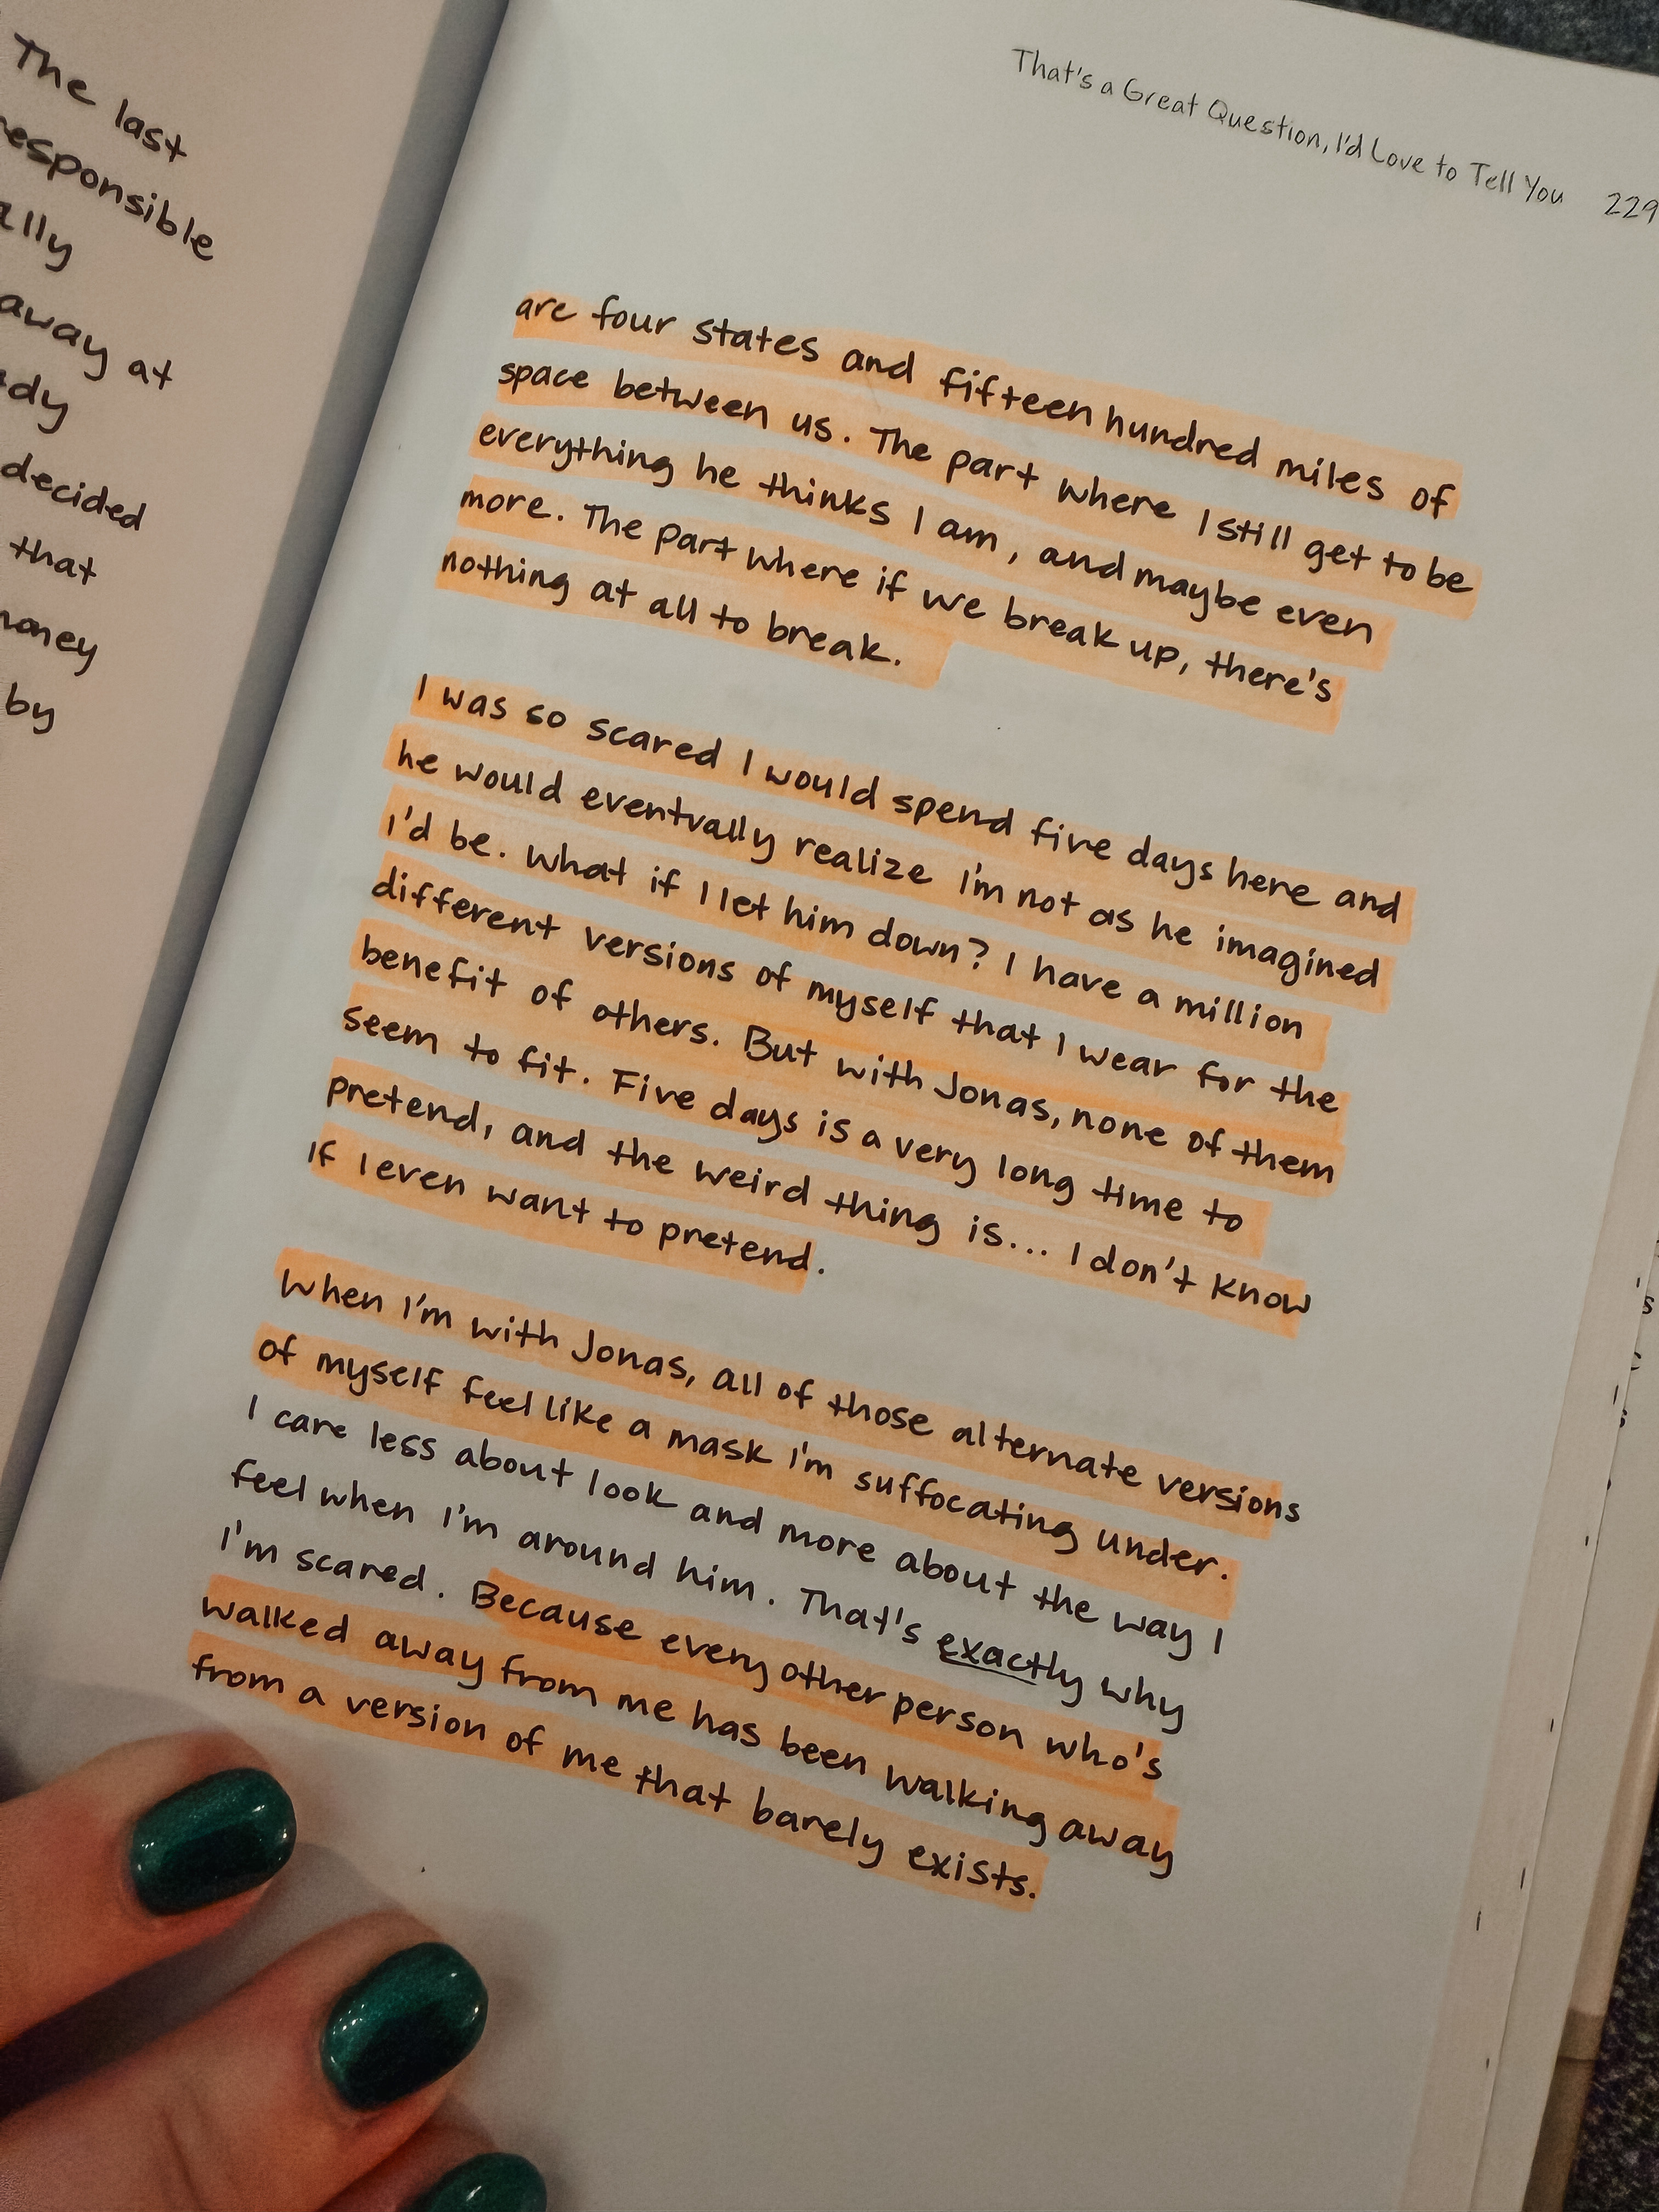 The last
responsible
ally
away at
decided
that
money
by
That's a Great Question, I'd Love to Tell You 229
are four states and fifteen hundred miles of
space between us. The part where I still get to be
everything he thinks I am, and maybe even
more. The part where if we break up, there's
nothing at all to break.
I was so scared I would spend five days here and
he would eventually realize I'm not as he imagined
I'd be. What if I let him down? I have a million
different versions of myself that I wear for the
benefit of others. But with Jonas, none of them
seem to fit. Five days is a very long time to
pretend, and the weird thing is... I don't know
if I even want to pretend.
When I'm with Jonas, all of those alternate versions
of myself feel like a mask I'm suffocating under.
I care less about look and more about the way I
feel when I'm around him. That's exactly why
I'm scared. Because every other person who's
walked away from me has been walking away
from a version of me that barely exists.